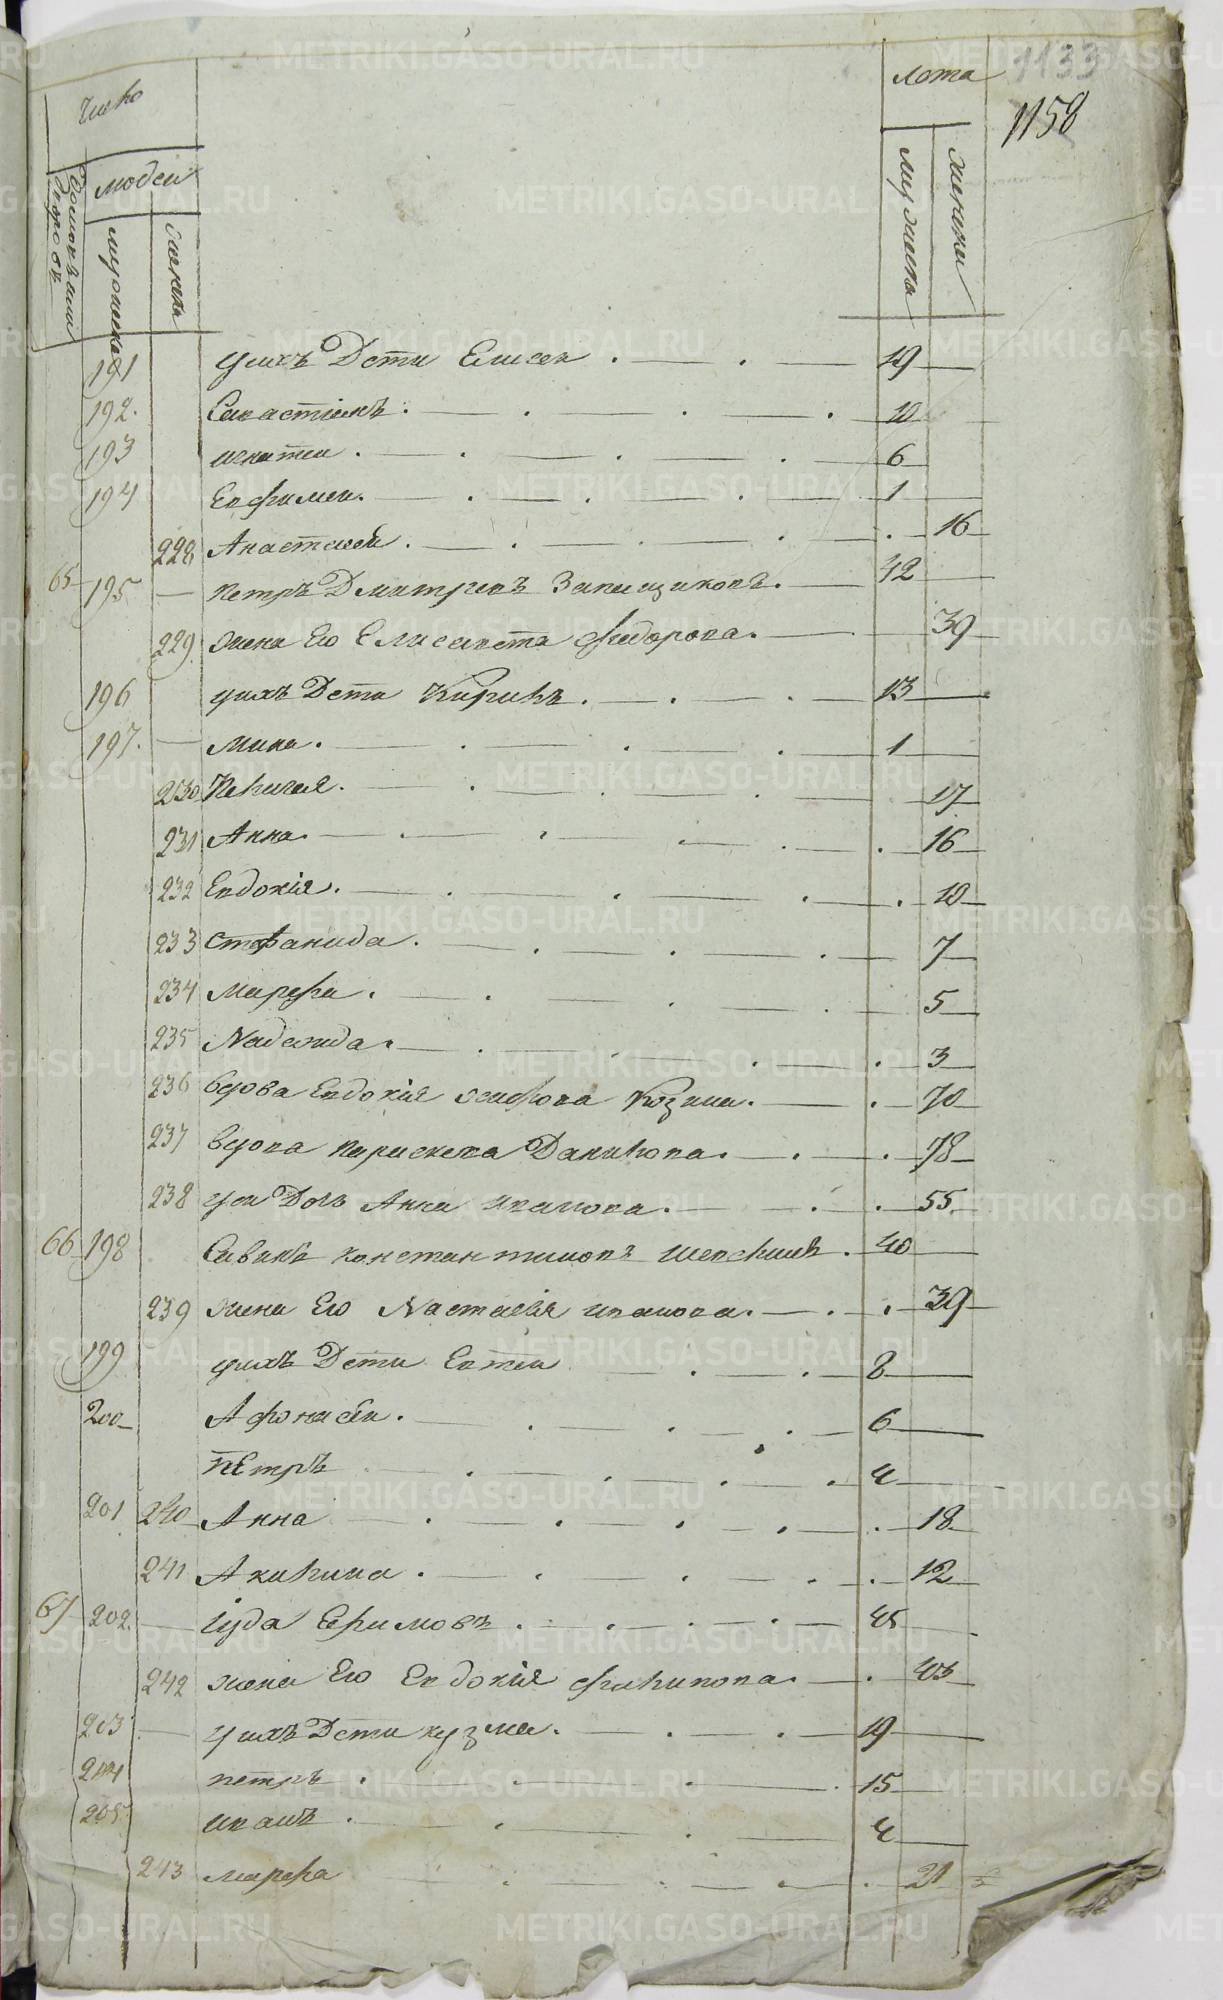 Число
лета
1133
1158
людей
мужеска
женска
мужеска
женска
191 у нихъ Дети Елисей 19
192. Савастіянъ. 10
193 игнатей. 6
194 Евфимей. 1
228 Анастасея. 16
65 195 петръ Дмитриевъ 42
229 жена Ево Елисавета Федорова. 39
196 у нихъ Дети Кирилъ. 13
197. Мина. 1
230 Пелагея. 17
231 Анна. 16
232 Евдокія. 10
233 стефанида. 7
234 Марфа. 5
235 Надежда. 3
236 вдова Евдокія Козина. 70
237 вдова параскева Данилова. 78
238 у ней Дочь Анна иванова. 55
66 198 Савинъ константиновъ 40
239 жена Ево Настасія иванова. 39
199 у нихъ Дети Евтей 8
200 Афонасей. 6
пЕтръ 4
201 240 Анна 18
241 Акилина. 12
67 202 Іуда Ефимовъ. 45
242 жена Ево Евдокія филипова. 43
203 у нихъ Дети кузма. 19
204 петръ. 15
205 иванъ. 4
243 марфа 21
METRIKI.GASO-URAL.RU